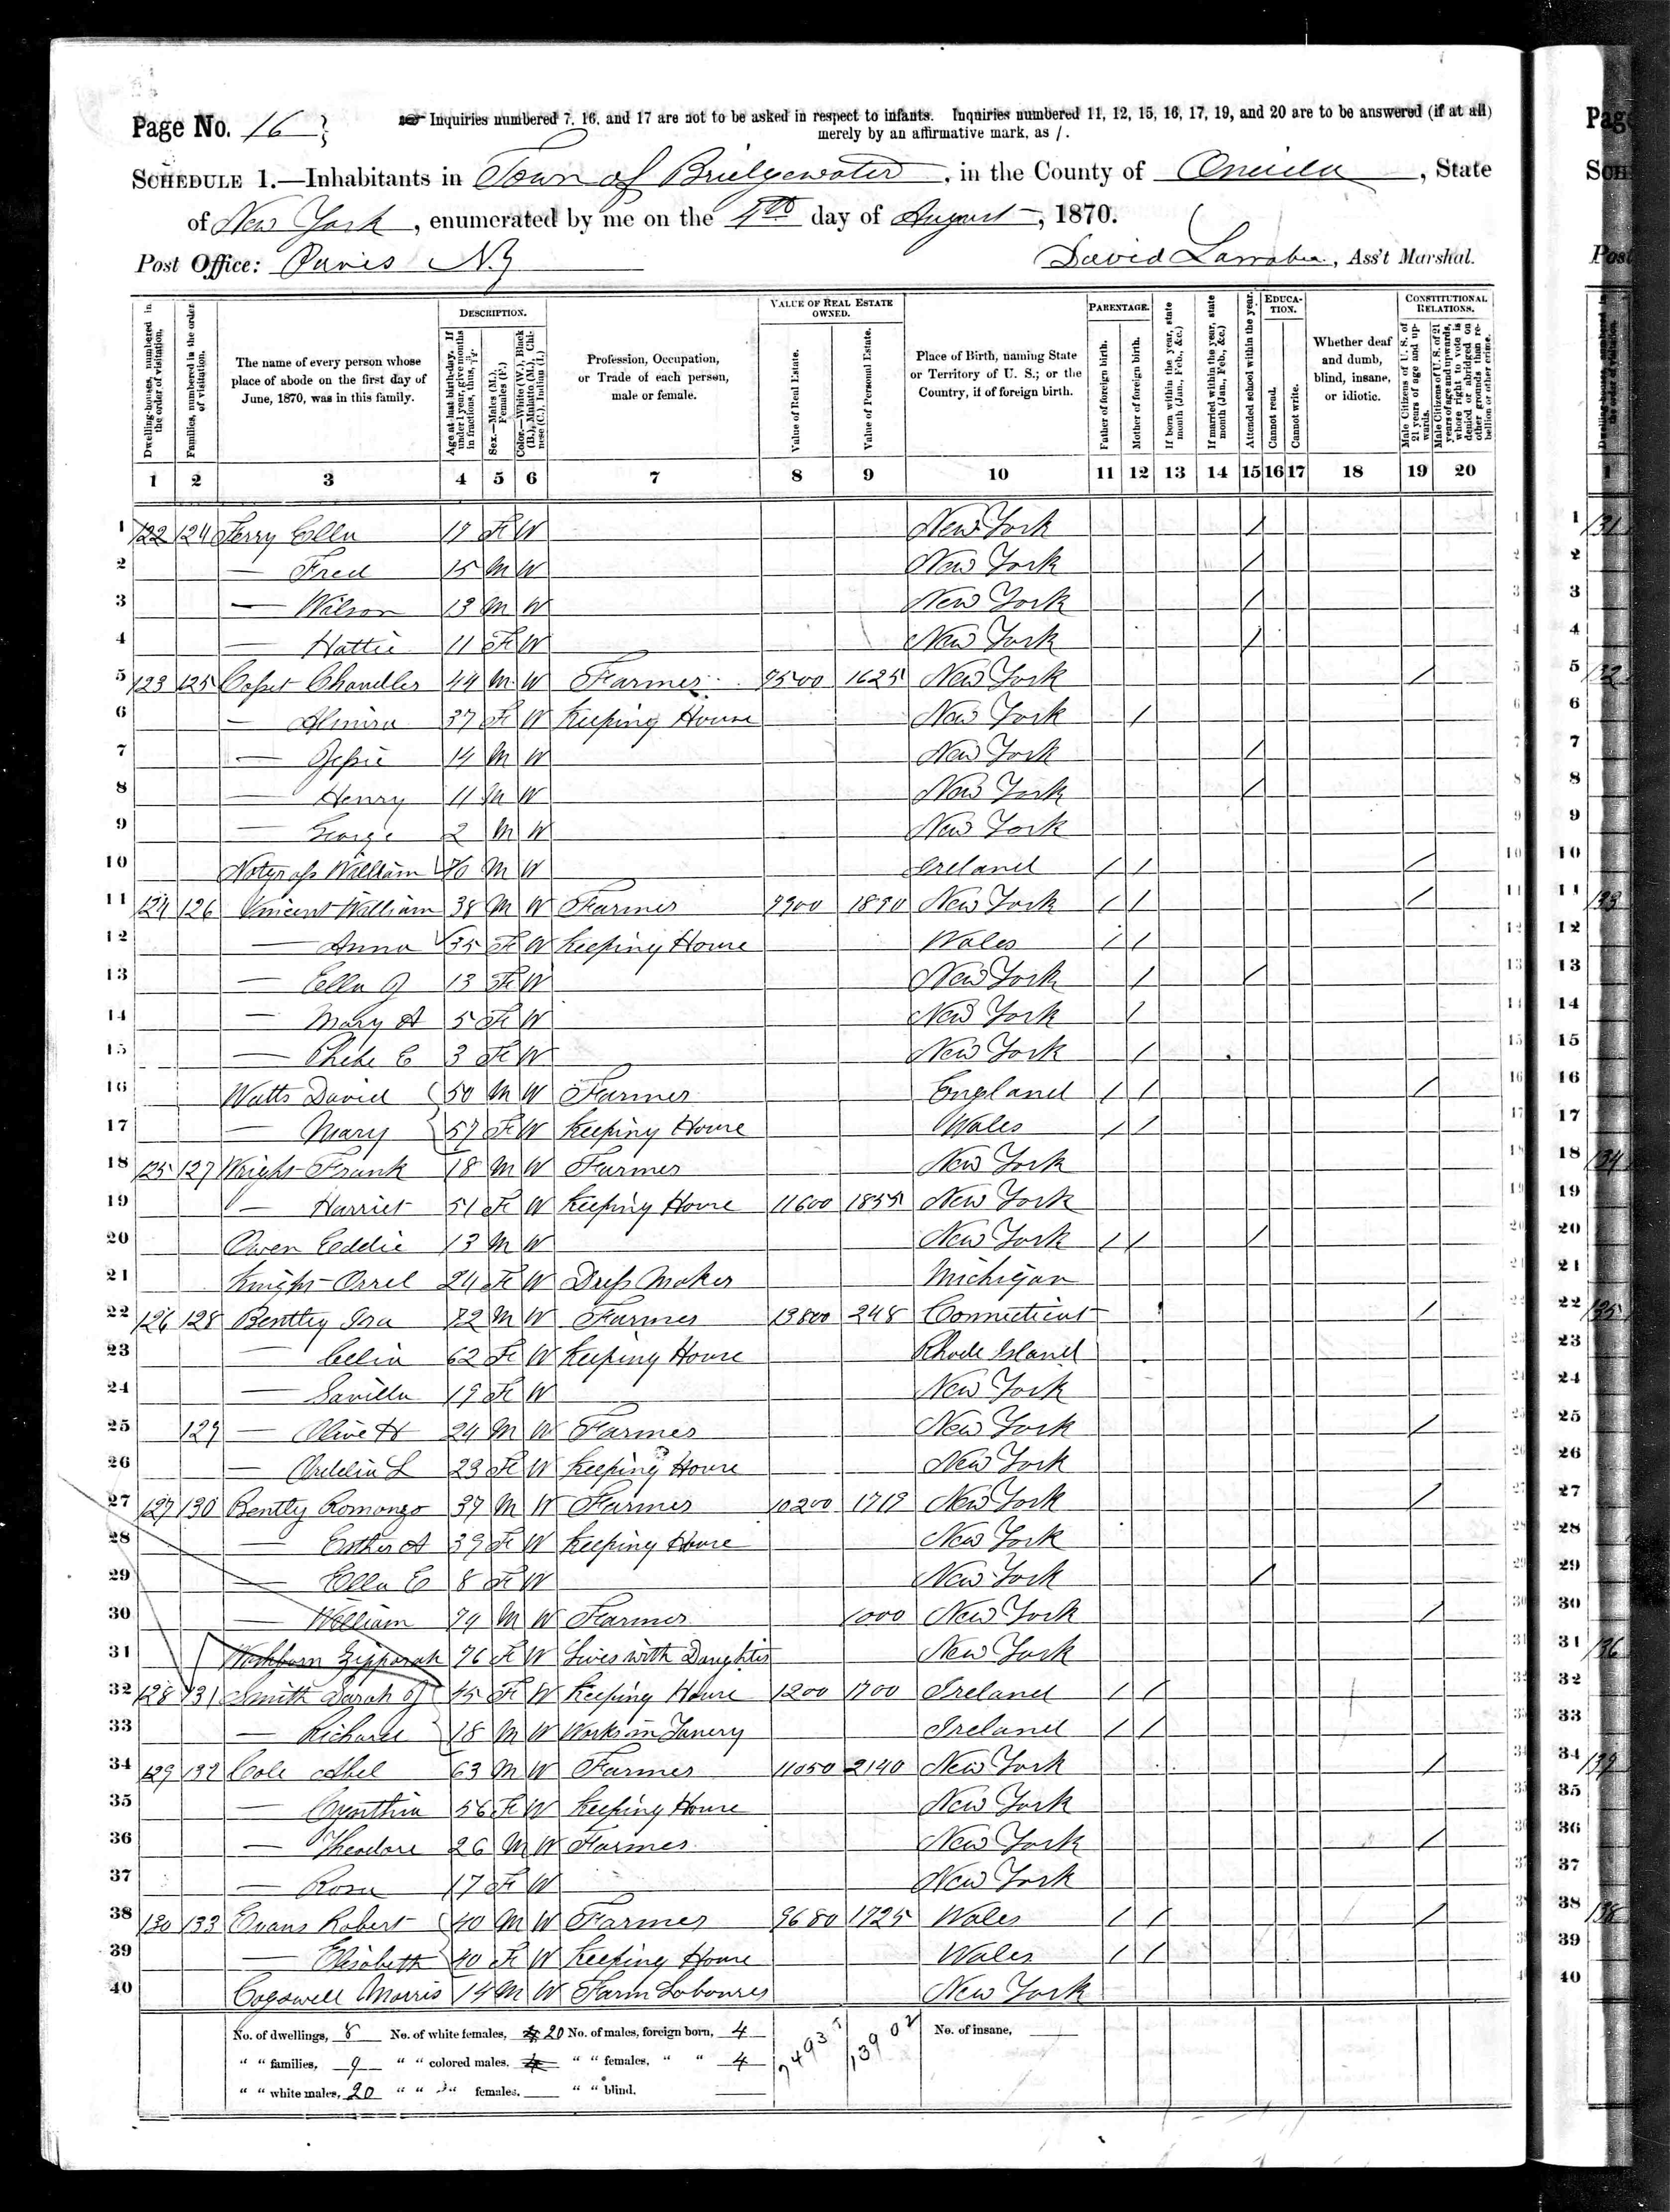 Page No. 16
Inquiries numbered 7, 16, and 17 are not to be asked in respect to infants. Inquiries numbered 11, 12, 15, 16, 17, 19, and 20 are to be answered (if at all)
merely by an affirmative mark, as /.
SCHEDULE 1.—Inhabitants in Town of Bridgewater, in the County of Oneida, State
of New York, enumerated by me on the day of August, 1870.
Post Office: Paris N.Y David Larrabee, Ass't Marshal.
Dwelling-houses, numbered in the order of visitation.
Families, numbered in the order of visitation.
The name of every person whose place of abode on the first day of June, 1870, was in this family.
DESCRIPTION.
Age at last birth-day. If under 1 year, give months in fractions, thus,
Sex.—Males (M.), Females (F.)
Color.—White (W.), Black (B.), Mulatto (M.), Chinese (C.), Indian (I.)
Profession, Occupation, or Trade of each person, male or female.
VALUE OF REAL ESTATE OWNED.
Value of Real Estate.
Value of Personal Estate.
Place of Birth, naming State or Territory of U. S.; or the Country, if of foreign birth.
PARENTAGE.
Father of foreign birth.
Mother of foreign birth.
If born within the year, state month (Jan., Feb., &c.)
If married within the year, state month (Jan., Feb., &c.)
Attended school within the year.
EDUCATION.
Cannot read.
Cannot write.
Whether deaf and dumb, blind, insane, or idiotic.
CONSTITUTIONAL RELATIONS.
Male Citizens of U. S. of 21 years of age and upwards.
Male Citizens of U. S. of 21 years of age and upwards, whose right to vote is denied or abridged on other grounds than rebellion or other crime.
1 2 3 4 5 6 7 8 9 10 11 12 13 14 15 16 17 18 19 20
1 122 124 Ella F W New York /
2 — Fred 15 M W New York /
3 — Wilson 13 M W New York /
4 — Hattie 11 F W New York /
5 123 125 Chandler 44 M W Farmer 1625 New York /
6 — Almira 37 F W Keeping House New York /
7 — 14 M W New York /
8 — Henry 11 M W New York /
9 — George 2 M W New York
10 William 70 M W Ireland / / /
11 124 126 Vincent William 38 M W Farmer New York / / /
12 — Anna 35 F W Keeping House Wales / /
13 — Ella J 13 F W New York / /
14 — Mary A 5 F W New York /
15 — Phebe E 3 F W New York /
16 Watts David 50 M W Farmer England / / /
17 — Mary 57 F W Keeping House Wales / /
18 125 127 Wright Frank 18 M W Farmer New York
19 — Harriet 51 F W Keeping House 11600 1855 New York
20 Owen Eddie 13 M W New York / / /
21 Knight Orrel 24 F W Dress Maker Michigan
22 126 128 Bentley Ira 72 M W Farmer 13800 248 Connecticut /
23 — Celia 62 F W Keeping House Rhode Island
24 — Savilla 19 F W New York
25 129 — Olive H 24 M W Farmer New York /
26 — Ordelia L 23 F W Keeping House New York
27 127 130 Bently Romanzo 37 M W Farmer 10200 New York /
28 — Esther A 39 F W Keeping House New York
29 — Ella E 8 F W New York /
30 — William 74 M W Farmer 1000 New York /
31 Washburn Zipporah 76 F W Lives with Daughter New York
32 128 131 Smith Sarah J 45 F W Keeping House 1200 1700 Ireland / /
33 — Richard 18 M W Works in Tanery Ireland / /
34 129 132 Cole Abel 63 M W Farmer 11050 2140 New York /
35 — Cynthia 56 F W Keeping House New York
36 — Theodore 26 M W Farmer New York /
37 — Rosa 17 F W New York
38 130 133 Evans Robert 40 M W Farmer 9680 1725 Wales / / /
39 — Elisabeth 40 F W Keeping House Wales / /
40 Cogswell Morris 14 M W Farm Labourer New York
No. of dwellings, 8 No. of white females, 20 No. of males, foreign born, 4 No. of insane,
" " families, 9 " " colored males, " " females, " " 4
" " white males, 20 " " " females, " " blind,